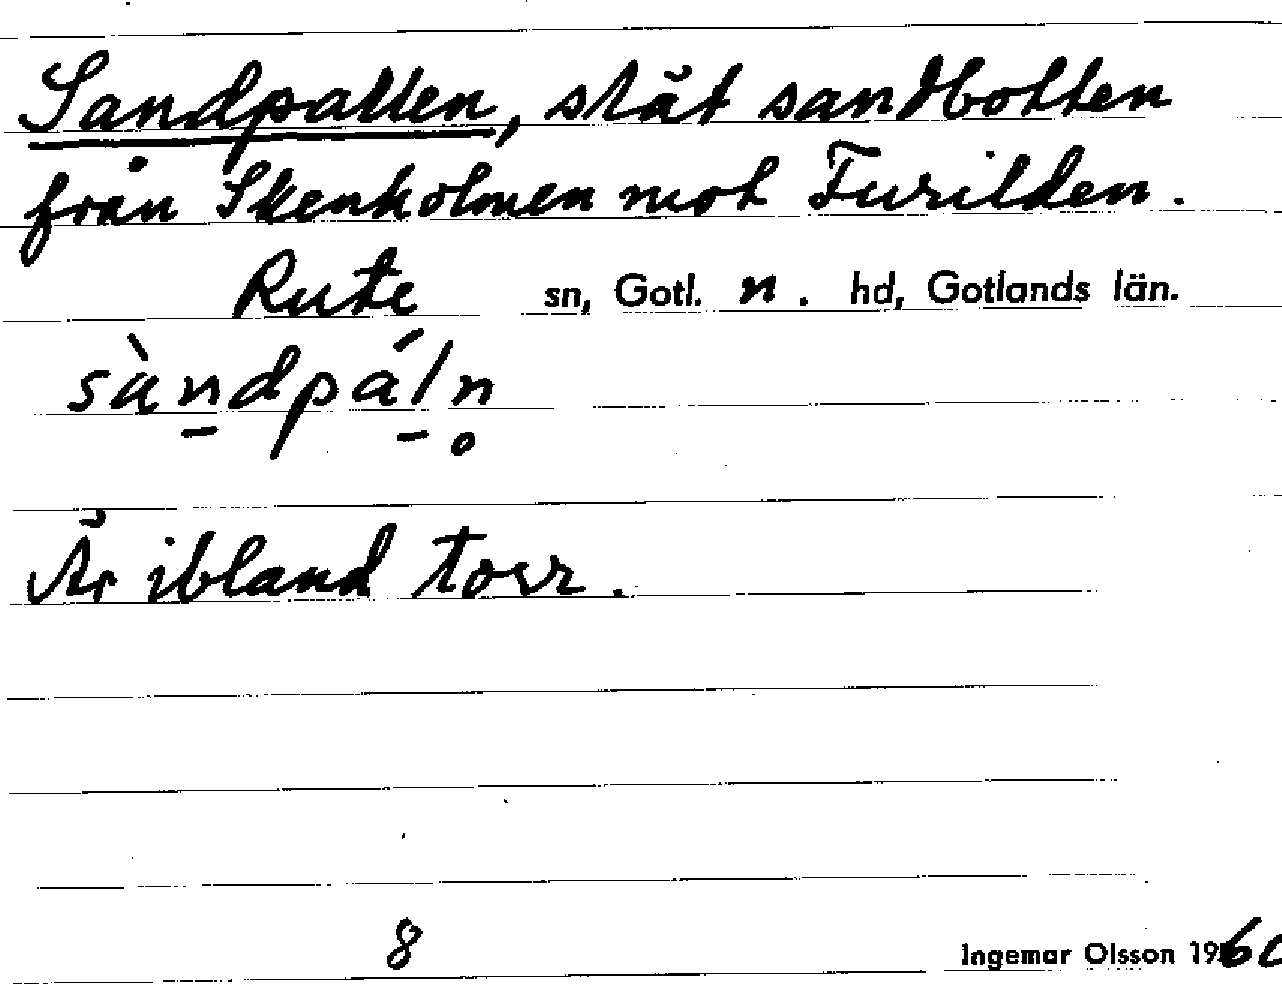 Sandpallen, slät sandbotten
från Skenholmen mot Furilden.
Rute sn, Gotl. n. hd, Gotlands län.
sànd̠pál̠n̥
Är ibland torr.
8 Ingemar Olsson 1960